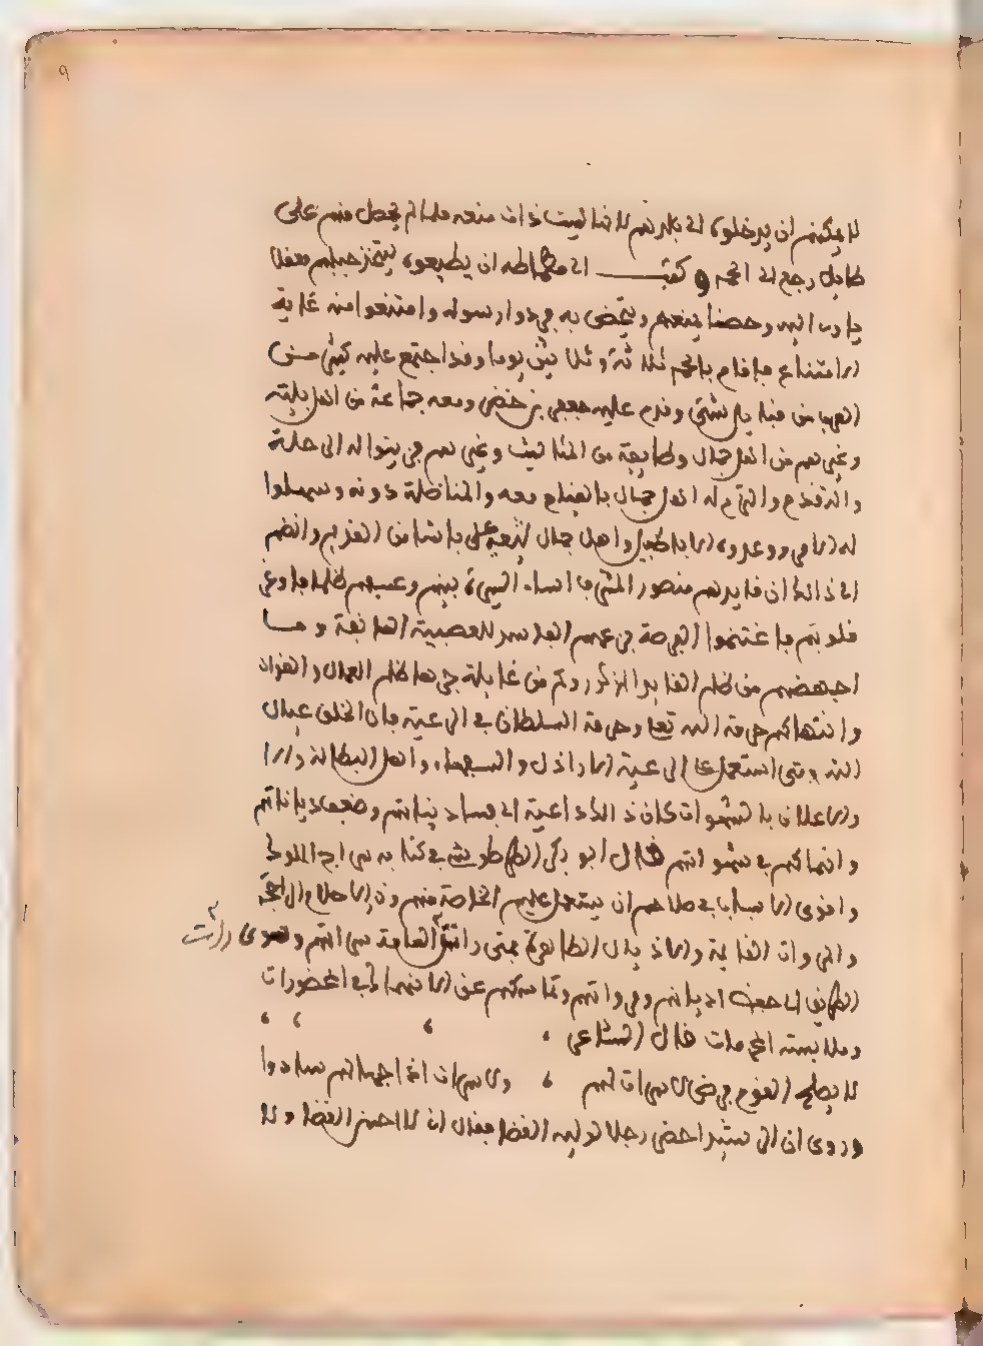 ٩
لا يمكنهم ان يدخلوه الى بلادهم لانها ليست ذات منعه فلما لم يحصل منهم على
طايل رجع الى الحمه وكتب الى مطماطه ان يطيعوه يتخذ جبلهم معقلا
يا وى اليه وحصنا يمنعهم ويتحصن به فردوا رسوله وامتنعوا منه غاية
الامتناع فاقام بالحمه ثلاثة وثلاثين يوما وقد اجتمع عليه كثير من
العرب من قبايل شتى وقدم عليه جعفر بن خضر ومعه جماعة من اهل
وغيرهم من اهل جمال وطايفة من المثاليث وغيرهم فرغبوا له الى
والتقدم والتزم له اهل جمال بالقيام معه والمناضلة دونه وسهلوا
له الامر ووعدوه الاباطيل واهل جمال شيعة علي باشا من القديم وانضم
الى ذالك ان قايدهم منصور المثنى اساء السيرة بينهم وعسفهم ظلما
قلوبهم فاغتنموا الفرصة في غرضهم الفاسد للعصبية السابقة وما
اجهضهم من ظلم القايد المذكور وكم من غايلة جرها ظلم العمال والقواد
وانتهاكهم حرمة الله تعا وحرمة السلطان في الرعية فان الخلق عيال
الله ومتى استعمل على الرعية الاراذل والسفهاء واهل البطالة والا
والاعلان بالشهوات كان ذالك داعية الى فساد نياتهم وضعف دياناتهم
وانهماكهم في شهواتهم قال ابو بكر الطرطوشي في كتابه سراج الملوك
واقوى الاسباب في صلاحهم ان يستعمل عليهم الخاصة منهم وذو الاحلام الراجحة
والمروات القايمة والاذيال الطاهرة فمتى راست العامة سراتهم فهو
راست
الطريق الى حفظ اديانهم ومرواتهم وتماسكهم عن الانهماك في المحضورات
وملابسة المحرمات قال الشاعر
لا يصلح القوم فوضى لا سراة لهم ولا سراة اذا جهالهم سادوا
وروى ان الرشيد احضر رجلا ليوليه القضا فقال اني لا احسن القضا ولا